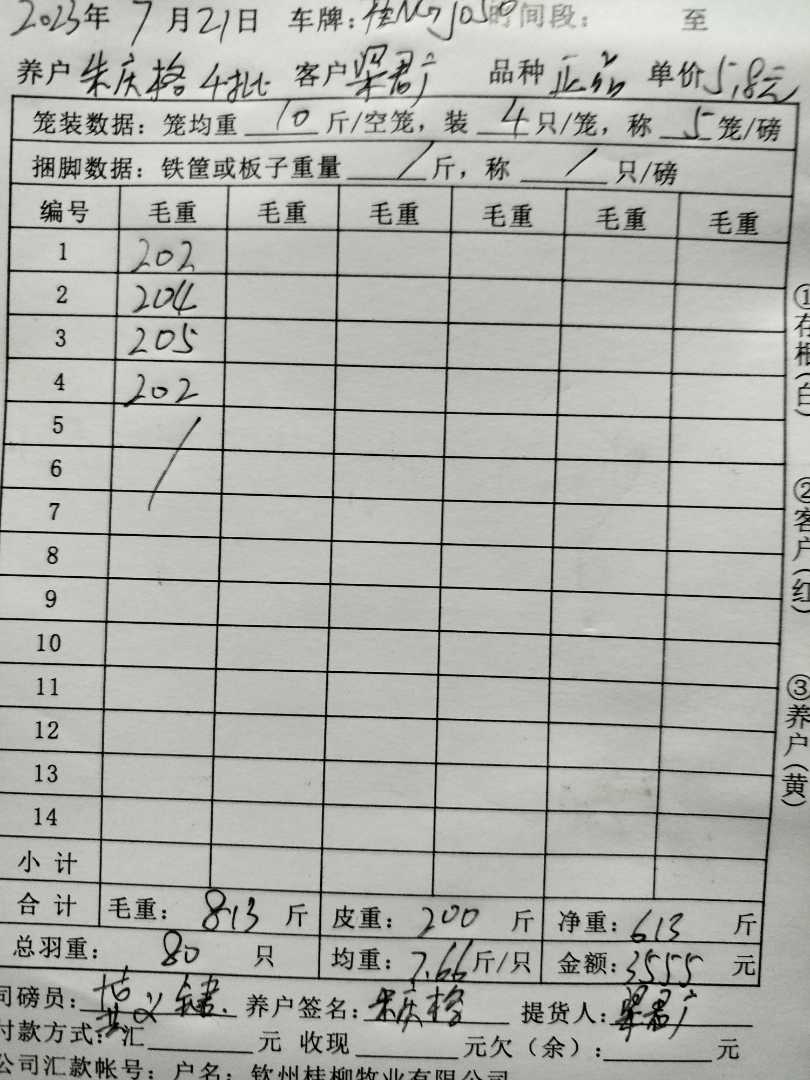 2023年 7月21日 车牌:桂N 时间段: 至
养户 朱庆格 4批 客户 梁君广 品种 正品 单价 5.8元
笼装数据: 笼均重 10 斤/空笼, 装 4 只/笼, 称 5 笼/磅
捆脚数据: 铁筐或板子重量 / 斤, 称 / 只/磅
编号 毛重 毛重 毛重 毛重 毛重 毛重
1 202
2 204
3 205
4 202
5 /
6
7
8
9
10
11
12
13
14
小计
合计 毛重: 813 斤 皮重: 200 斤 净重: 613 斤
总羽重: 80 只 均重: 7.66 斤/只 金额: 3555 元
司磅员: 养户签名: 朱庆格 提货人: 梁君广
付款方式: 汇 元 收现 元欠(余): 元
公司汇款帐号: 户名: 钦州桂柳牧业有限公司
①存根(白)
②客户(红)
③养户(黄)